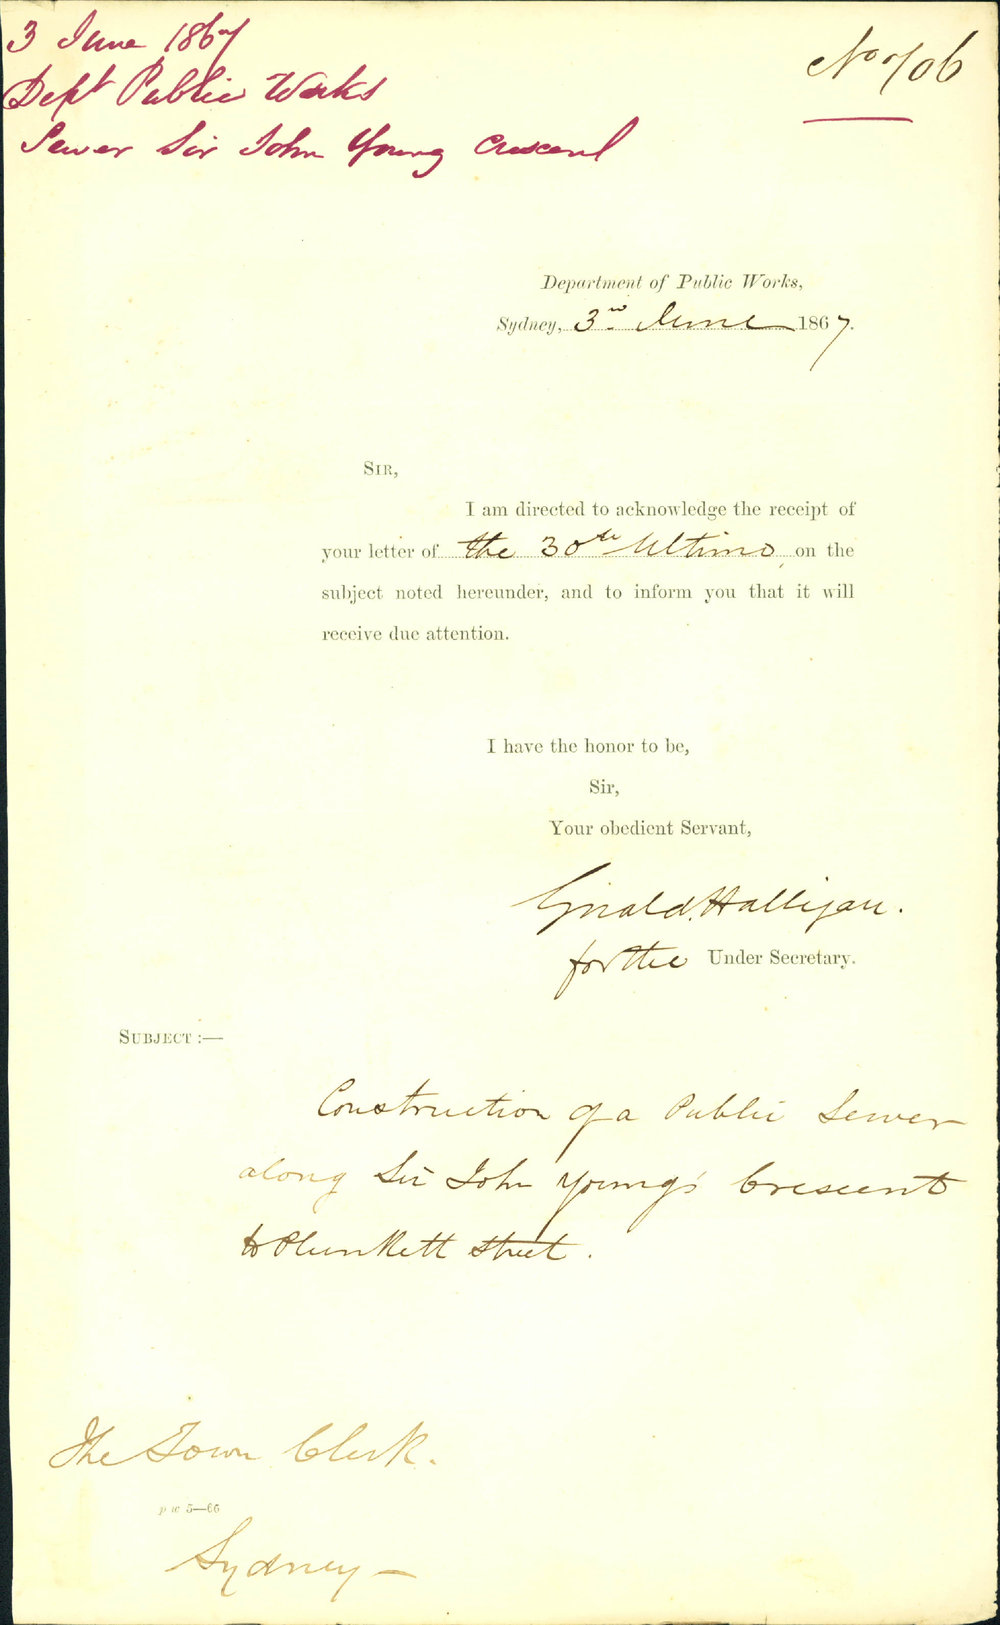 3 June 1867
Dept Public Works
Sewer Sir John Young Crescent
No 706
Department of Public Works,
Sydney, 3rd June 1867.
SIR,
I am directed to acknowledge the receipt of
your letter of the 30th Ultimo, on the
subject noted hereunder, and to inform you that it will
receive due attention.
I have the honor to be,
Sir,
Your obedient Servant,
Gerald Halligan.
for the Under Secretary.
SUBJECT :—
Construction of a Public Sewer
along Sir John Young's Crescent
to Plunkett Street.
The Town Clerk.
p w 5—66
Sydney —